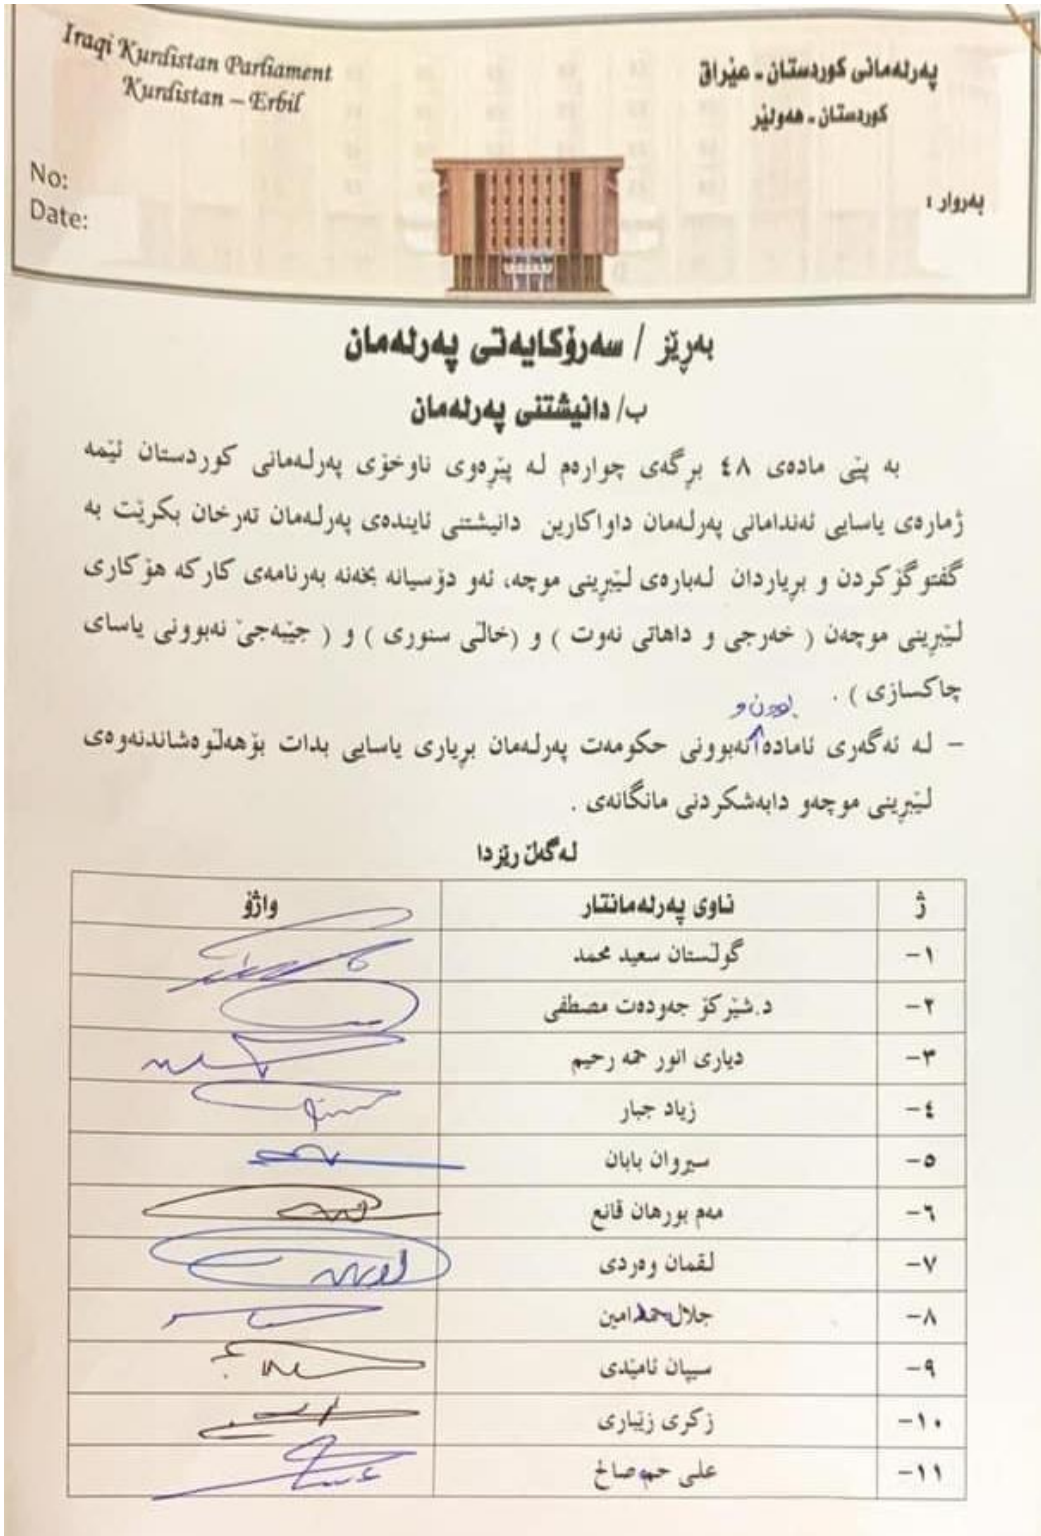 Iraqi Kurdistan Parliament
Kurdistan – Erbil
پەرلەمانی کوردستان - عێراق
کوردستان - هەولێر
No:
Date:
بەروار :
بەڕێز / سەرۆکایەتی پەرلەمان
ب/ دانیشتنی پەرلەمان
بە پێی مادەی ٤٨ برگەی چوارەم لە پێرەوی ناوخۆی پەرلەمانی کوردستان ئێمە
ژمارەی یاسایی ئەندامانی پەرلەمان داواکارین دانیشتنی ئایندەی پەرلەمان تەرخان بکرێت بە
گفتوگۆکردن و بریاردان لەبارەی لێبڕینی موچە، ئەو دۆسیانە بخەنە بەرنامەی کارکە هۆکاری
لێبڕینی موچەن ( خەرجی و داهاتی نەوت ) و (خاڵی سنوری ) و ( جێبەجێ نەبوونی یاسای
چاکسازی ) .
بوون و
– لە ئەگەری ئامادە نەبوونی حکومەت پەرلەمان بریاری یاسایی بدات بۆهەڵوەشاندنەوەی
لێبڕینی موچەو دابەشکردنی مانگانەی .
لەگەڵ رێزدا
ژ ناوی پەرلەمانتار واژۆ
١- گوڵستان سعید محمد
٢- د.شێرکۆ جەودەت مصطفی
٣- دیاری انور حمە رحیم
٤- زیاد جبار
٥- سیروان بابان
٦- مەم بورهان قانع
٧- لقمان وەردی
٨- جلال حمدامین
٩- سیپان ئامێدی
١٠- زکری زێباری
١١- علی حمە صالح